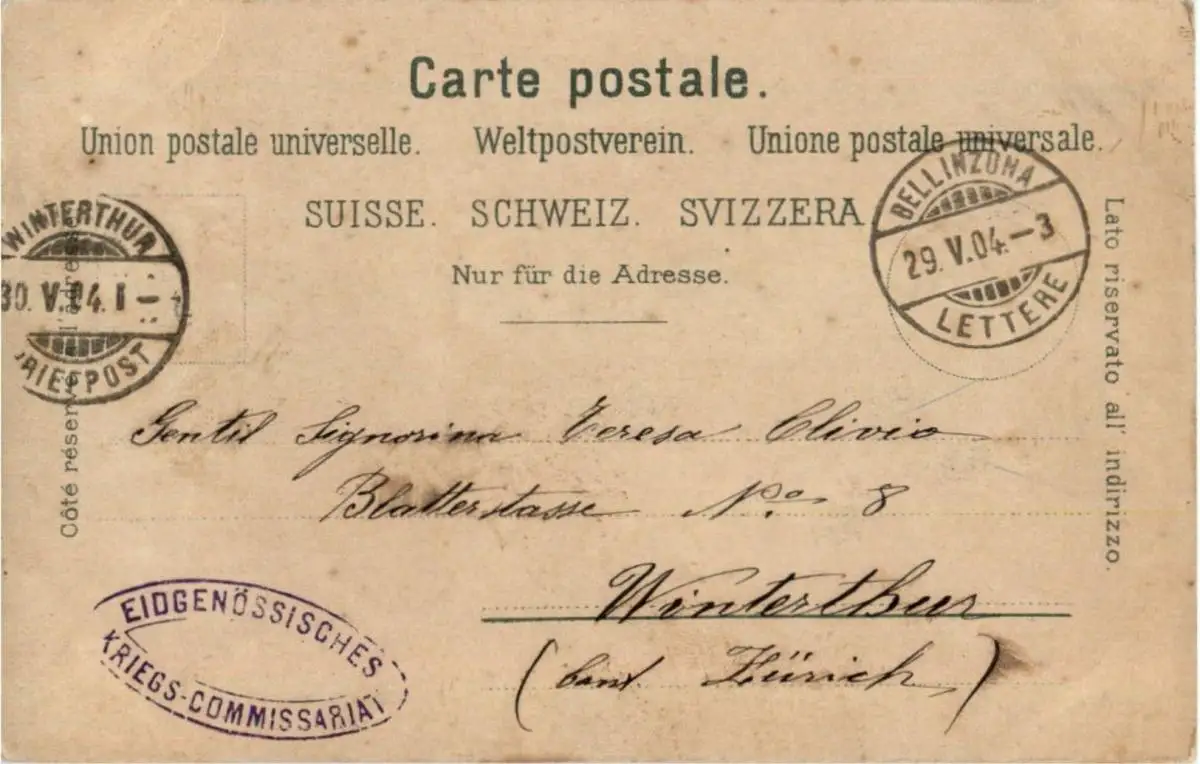 Carte postale.
Union postale universelle. Weltpostverein. Unione postale universale.
SUISSE. SCHWEIZ. SVIZZERA
Nur für die Adresse.
WINTERTHUR
30. V. 04. I -
RIEFPOST
BELLINZONA
29. V. 04. - 3
LETTERE
Côté réservé l'adres
Lato riservato all' indirizzo.
Gentil Signorina Teresa Clivio
Blatterstasse No. 8
Winterthur
(Cant. Zürich)
EIDGENÖSSISCHES
KRIEGS-COMMISSARIAT